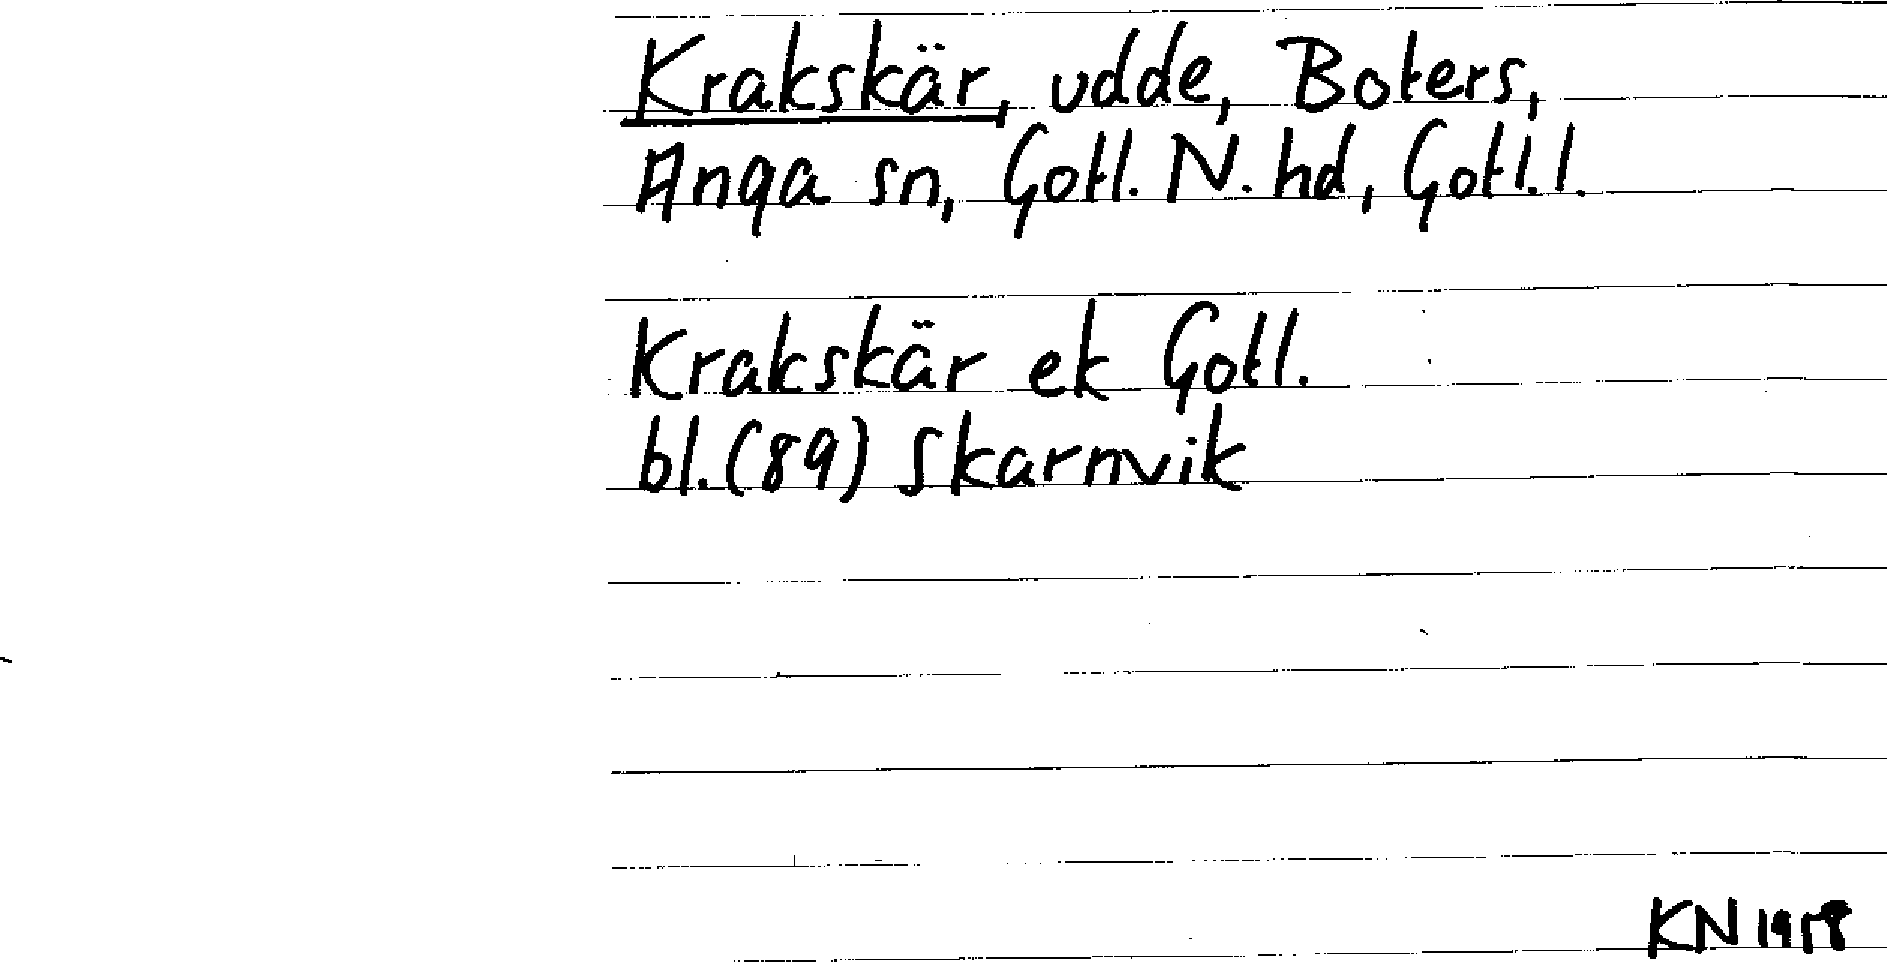 Krakskär, udde, Boters,
Anga sn, Gotl. N. hd, Gotl. l.
Krakskär ek Gotl.
bl. (89) Skarnvik
KN 1958